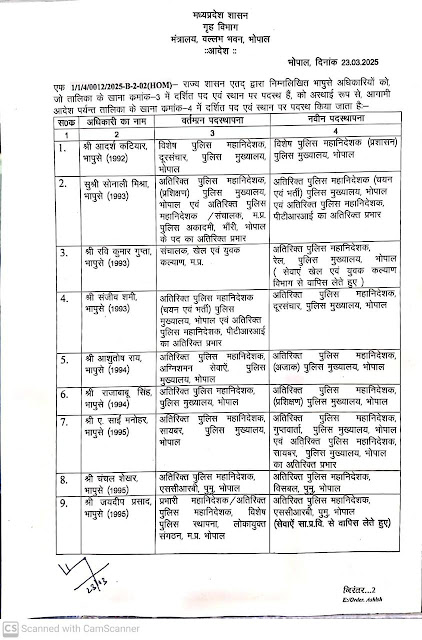 मध्यप्रदेश शासन
गृह विभाग
मंत्रालय, वल्लभ भवन, भोपाल
::आदेश::
भोपाल, दिनांक 23.03.2025
एफ 1/1/4/0012/2025-B-2-02(HOM)– राज्य शासन एतद् द्वारा निम्नलिखित भापुसे अधिकारियों को,
जो तालिका के खाना कमांक–3 में दर्शित पद एवं स्थान पर पदस्थ हैं, को अस्थाई रूप से, आगामी
आदेश पर्यन्त तालिका के खाना कमांक–4 में दर्शित पद एवं स्थान पर पदस्थ किया जाता है:–
स0क0 अधिकारी का नाम वर्तमान पदस्थापना नवीन पदस्थापना
1 2 3 4
1. श्री आदर्श कटियार, भापुसे (1992)
विशेष पुलिस महानिदेशक,
दूरसंचार, पुलिस मुख्यालय,
भोपाल
विशेष पुलिस महानिदेशक (प्रशासन)
पुलिस मुख्यालय, भोपाल
2. सुश्री सोनाली मिश्रा,
भापुसे (1993)
अतिरिक्त पुलिस महानिदेशक,
(प्रशिक्षण) पुलिस मुख्यालय,
भोपाल एवं अतिरिक्त पुलिस
महानिदेशक /संचालक, म.प्र.
पुलिस अकादमी, भौंरी, भोपाल
के पद का अतिरिक्त प्रभार
अतिरिक्त पुलिस महानिदेशक (चयन
एवं भर्ती) पुलिस मुख्यालय, भोपाल
एवं अतिरिक्त पुलिस महानिदेशक,
पीटीआरआई का अतिरिक्त प्रभार
3. श्री रवि कुमार गुप्ता,
भापुसे (1993)
संचालक, खेल एवं युवक
कल्याण, म.प्र.
अतिरिक्त पुलिस महानिदेशक,
रेल, पुलिस मुख्यालय, भोपाल
( सेवाएं खेल एवं युवक कल्याण
विभाग से वापिस लेते हुए )
4. श्री संजीव शमी,
भापुसे (1993)
अतिरिक्त पुलिस महानिदेशक
(चयन एवं भर्ती) पुलिस
मुख्यालय, भोपाल एवं अतिरिक्त
पुलिस महानिदेशक, पीटीआरआई
का अतिरिक्त प्रभार
अतिरिक्त पुलिस महानिदेशक,
दूरसंचार, पुलिस मुख्यालय, भोपाल
5. श्री आशुतोष राय,
भापुसे (1994)
अतिरिक्त पुलिस महानिदेशक,
अग्निशमन सेवाऐं, पुलिस
मुख्यालय, भोपाल
अतिरिक्त पुलिस महानिदेशक,
(अजाक) पुलिस मुख्यालय, भोपाल
6. श्री राजाबाबू सिंह,
भापुसे (1994)
अतिरिक्त पुलिस महानिदेशक,
पुलिस मुख्यालय, भोपाल
अतिरिक्त पुलिस महानिदेशक,
(प्रशिक्षण) पुलिस मुख्यालय, भोपाल
7. श्री ए. साई मनोहर,
भापुसे (1995)
अतिरिक्त पुलिस महानिदेशक,
सायबर, पुलिस मुख्यालय,
भोपाल
अतिरिक्त पुलिस महानिदेशक,
गुप्तवार्ता, पुलिस मुख्यालय, भोपाल
एवं अतिरिक्त पुलिस महानिदेशक,
सायबर, पुलिस मुख्यालय, भोपाल
का अतिरिक्त प्रभार
8. श्री चंचल शेखर,
भापुसे (1995)
अतिरिक्त पुलिस महानिदेशक,
एससीआरबी, पुमु, भोपाल
अतिरिक्त पुलिस महानिदेशक,
विसबल, पुमु, भोपाल
9. श्री जयदीप प्रसाद,
भापुसे (1995)
प्रभारी महानिदेशक/अतिरिक्त
पुलिस महानिदेशक, विशेष
पुलिस स्थापना, लोकायुक्त
संगठन, म.प्र. भोपाल
अतिरिक्त पुलिस महानिदेशक,
एससीआरबी, पुमु, भोपाल
(सेवाऐं सा.प्र.वि. से वापिस लेते हुए)
23/03
निरंतर...2
E:/Order. Ashish
CS Scanned with CamScanner